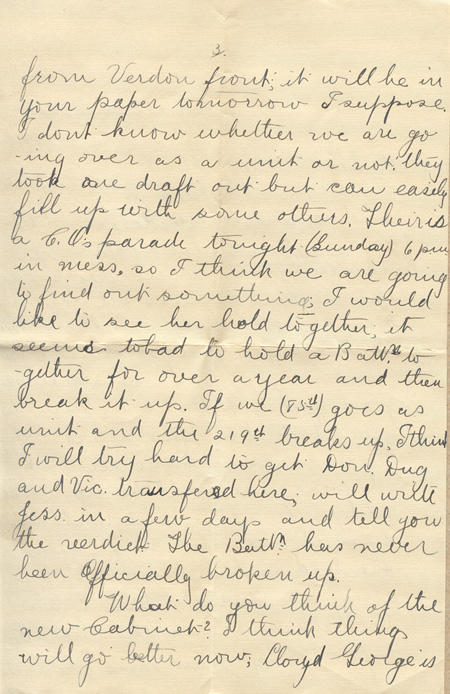 3.
from Verdon front; it will be in
your paper tomorrow I suppose.
I dont know whether we are go
-ing over as a unit or not. they
took one draft out but can easely
fill up with some others. Theiris
a C.O's parade tonight (Sunday) 6 pm
in mess, so I think we are going
to find out something; I would
like to see her hold together, it
seems tobad to hold a Battn to
-gether for over a year and then
break it up. If we (85th) goes as
unit and the 219th breaks up, I think
I will try hard to get Don. Dug
and Vic. transfered here, will write
Jess. in a few days and tell you
the verdick The Battn has never
been Officially broken up.
What do you think of the
new Cabinet? I think things
will go better now; Lloyd George is